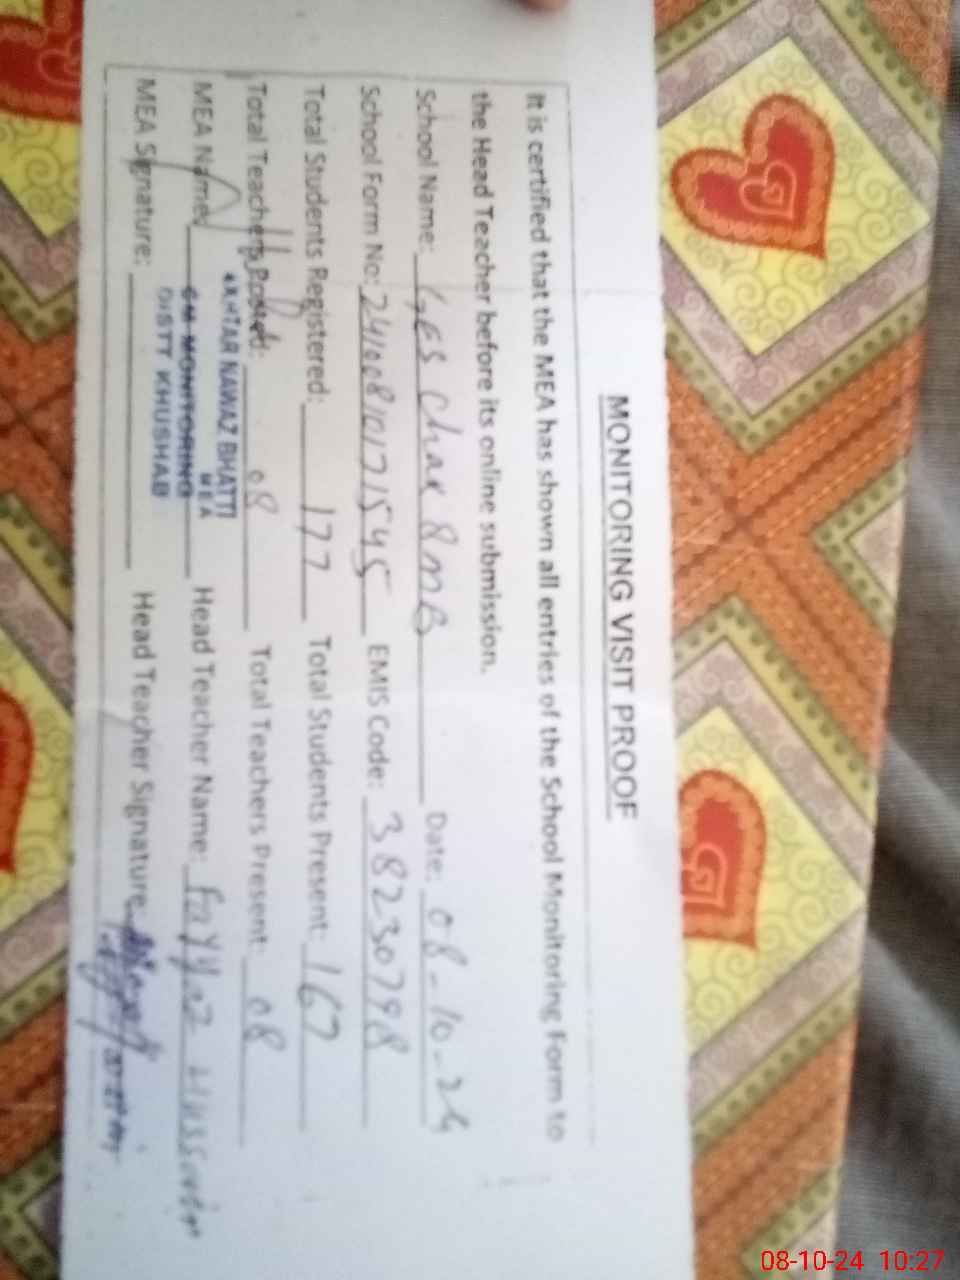 MONITORING VISIT PROOF
It is certified that the MEA has shown all entries of the School Monitoring Form to
the Head Teacher before its online submission.
School Name: GES Chak 8 MB Date: 08-10-24
School Form No: 24100810171545 EMIS Code: 38230798
Total Students Registered: 177 Total Students Present: 167
Total Teachers Posted: 08 Total Teachers Present: 08
AKHTAR NAWAZ BHATTI
MEA
MEA Name: Head Teacher Name: Fayyaz Hussain
CM MONITORING
DISTT KHUSHAB
MEA Signature: Head Teacher Signature
08-10-24 10:27